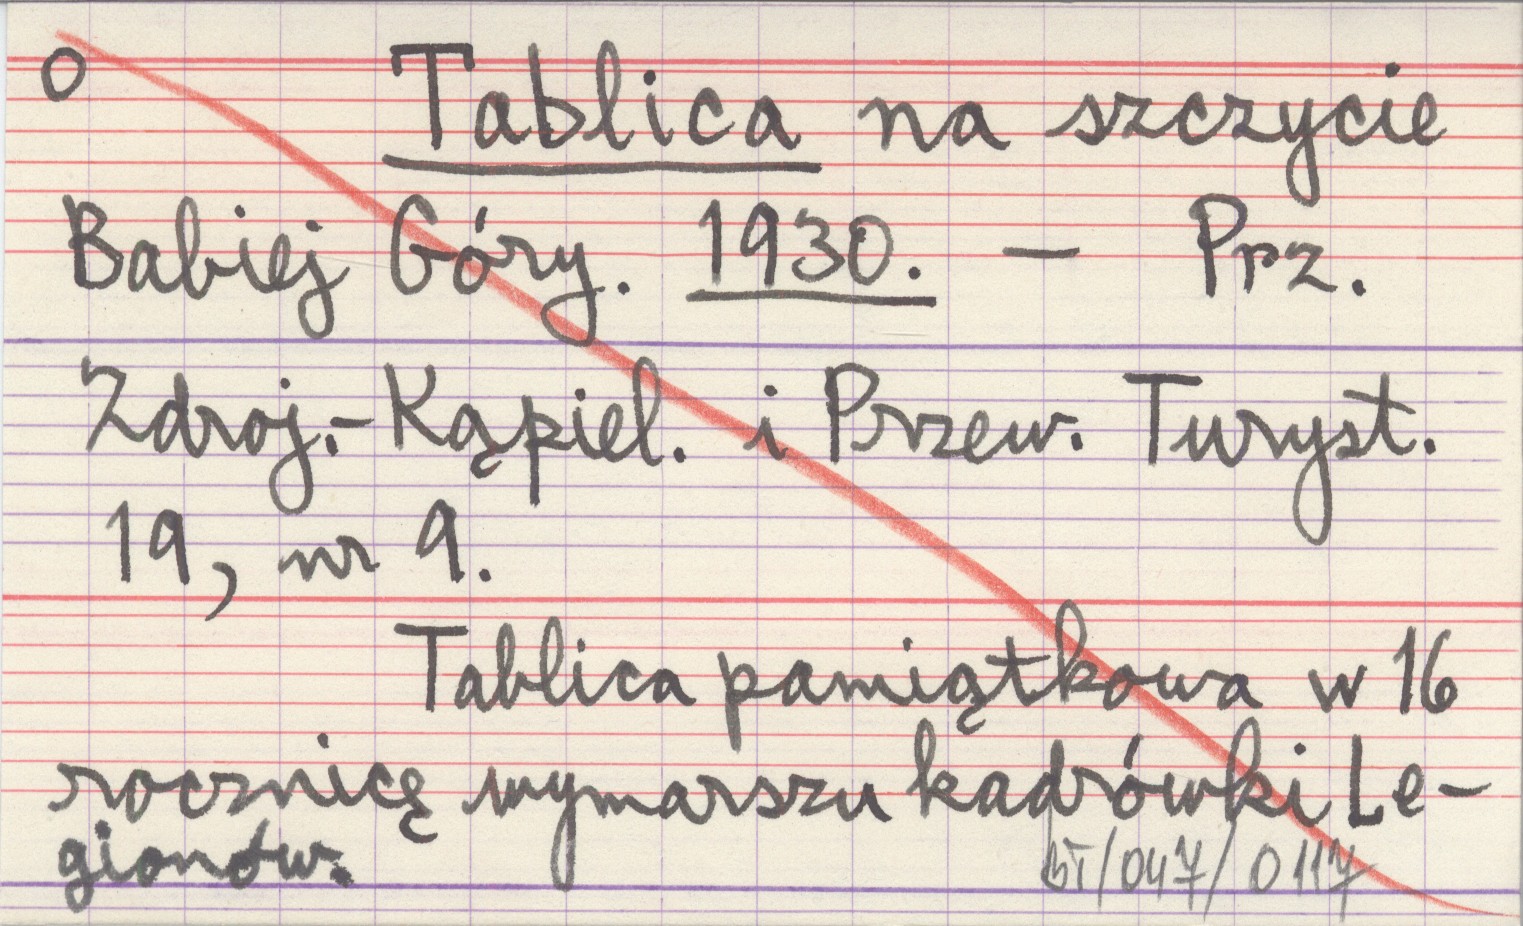 o Tablica na szczycie
Babiej Góry. 1930. — Prz.
Zdroj.-Kąpiel. i Przew. Turyst.
19, nr 9.
Tablica pamiątkowa w 16
rocznicę wymarszu kadrówki Le-
gionów.
BT/047/0117